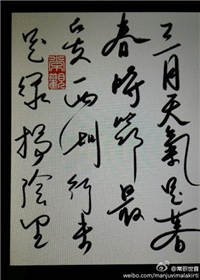 三月天氣是暮
春時節最
愛西湖行未
足綠楊陰里
@常觀世音
weibo.com/manjuvimalakirti